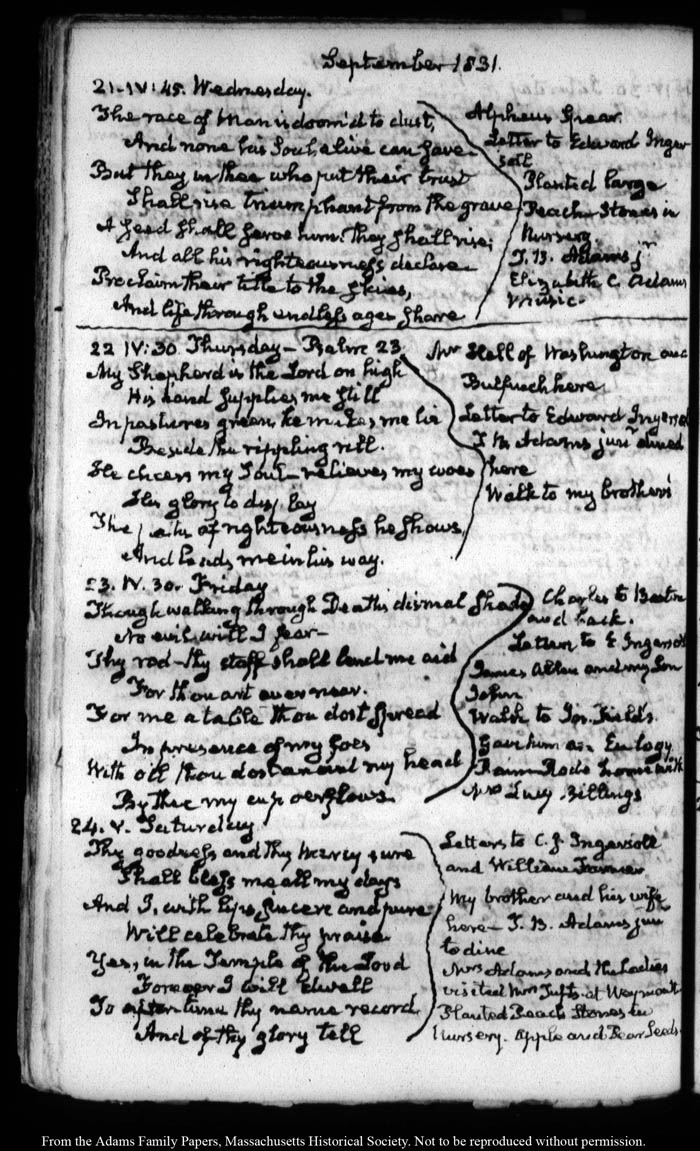 September 1831.
21. IV:45. Wednesday.
The race of Man is doom'd to dust,
And none his Soul alive can save
But they in thee who put their trust
Shall rise triumphant from the grave
A seed shall serve him. They shall rise;
And all his righteousness declare
Proclaim their title to the skies,
And life through endless ages share
Alpheus Spear.
Letter to Edward Inger
soll
Planted large
Peach Stones in
Nursery
T. B. Adams jr
Elizabeth C. Adams
Music
22 IV:30. Thursday— Psalm 23
My Shepherd is the Lord on high
His hand supplies me still
In pastures green he makes me lie
Beside the rippling rill.
He cheers my Soul— relieves my woes
His glory to display
The paths of righteousness he shows,
And leads me in his way.
Mr of Washington and
Bulfinch here
Letter to Edward Ingersol
T. B. Adams junr dined
here
Walk to my brother's
23. IV. 30. Friday
Though walking through Death's dismal shade
No evil will I fear—
Thy rod— thy staff shall lend me aid
For thou art ever near.
For me a table thou dost spread
In presence of my foes
With oil thou dost anoint my head
By thee my cup overflows.
Charles to Boston
and back.
Letter to E Ingersoll
James Allen and my Son
John
Walk to Jos. Field's
Gave him an Eulogy
Rain Rode home with
Mrs Lucy Billings
24. V. Saturday
Thy goodness and thy mercy sure
Shall bless me all my days
And I, with lips sincere and pure
Will celebrate thy praise
Yes, in the Temple of the Lord
Forever I will dwell
To after time thy name record
And of thy glory tell
Letters to C. J. Ingersoll
and William
My brother and his wife
here— T. B. Adams jun
to dine
Mrs Adams and the Ladies
visited Mrs Tufts at Weymouth
Planted Peach Stones in
Nursery. Apple and Pear Seeds.
From the Adams Family Papers, Massachusetts Historical Society. Not to be reproduced without permission.